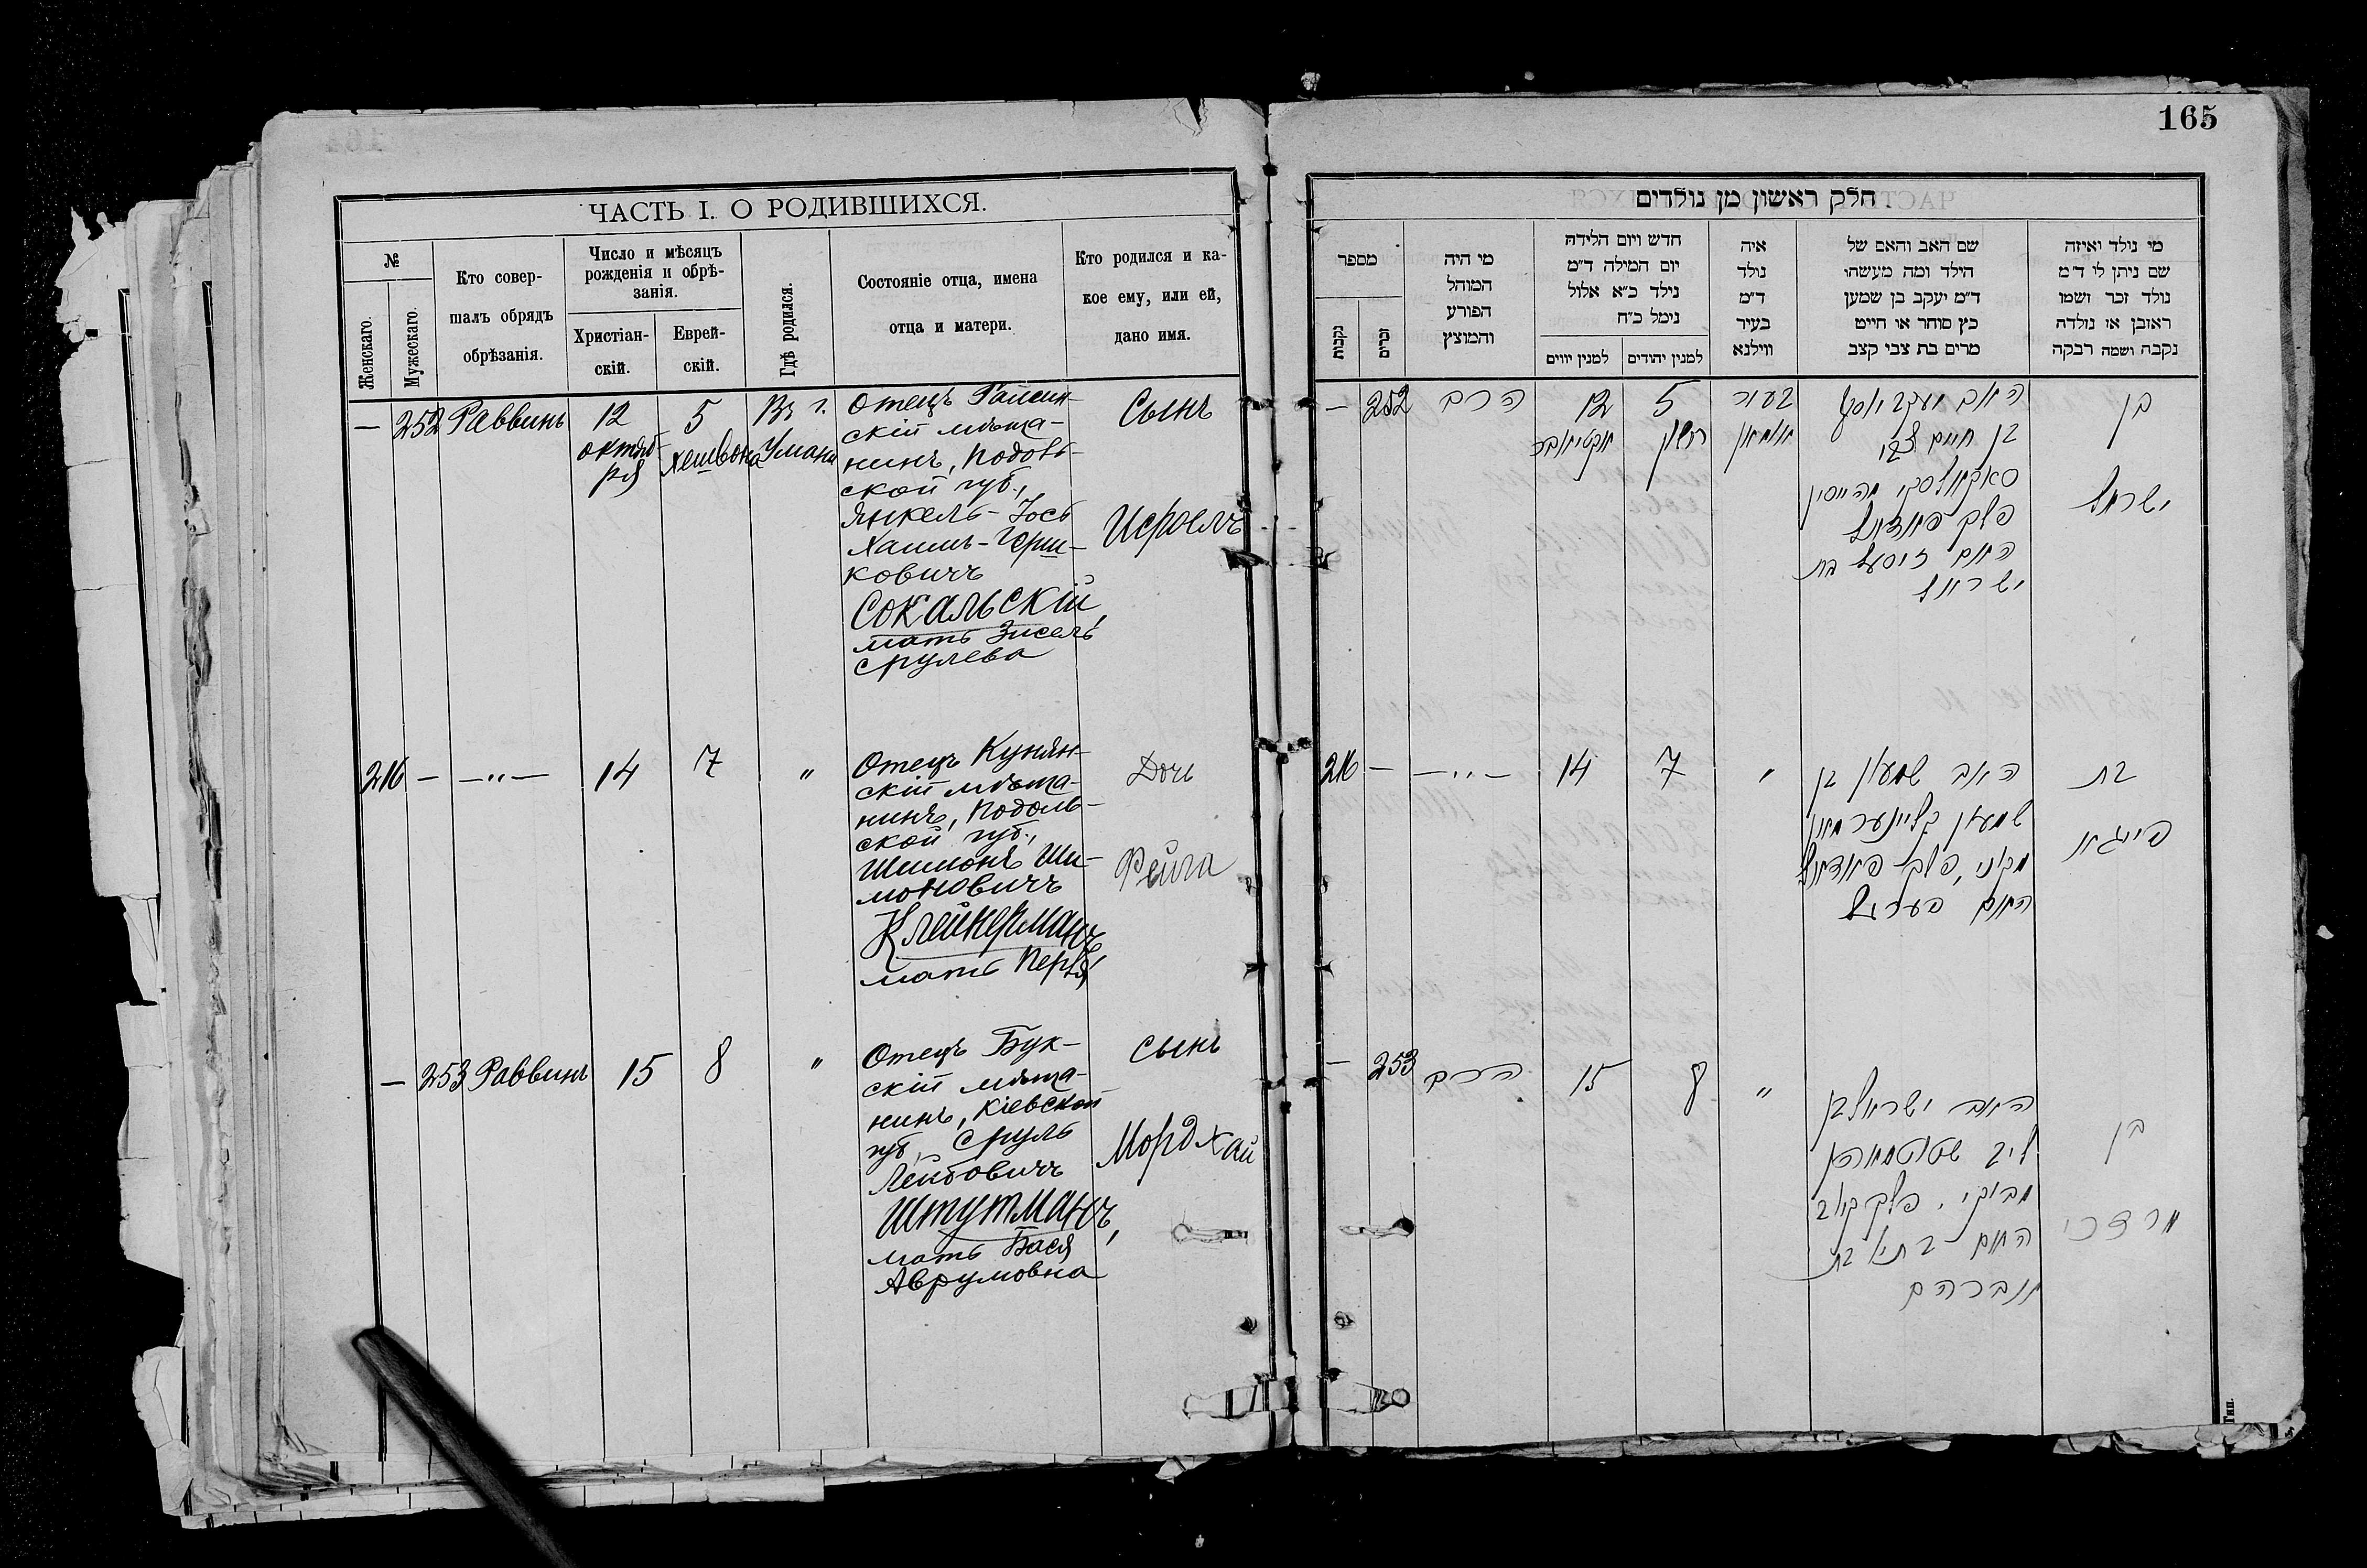 ЧАСТЬ I. О РОДИВШИХСЯ.
№
Женскаго.
Мужескаго.
Кто совер-
шалъ обрядъ
обрѣзанія.
Число и мѣсяцъ
рожденія и обрѣ-
занія.
Христіан-
скій.
Еврей-
скій.
Гдѣ родился.
Состояніе отца, имена
отца и матери.
Кто родился и ка-
кое ему, или ей,
дано имя.
— 252 Раввинъ
12
октяб-
ря
5
Хешвона
Въ г.
Умани
Отецъ Райсин-
скій мѣща-
нинъ, Подоль-
ской губ.,
Янкель-Іось
Хаимъ-Герш-
ковичъ
Сокальскій,
мать Зисель
Срулева
Сынъ
Исроель
216 — —"— 14 7 "
Отецъ Кунян-
скій мѣща-
нинъ, Подоль-
ской губ.,
Шимонъ Ши-
моновичъ
Клейнерманъ,
мать Перля
Дочь
Фейга
— 253 Раввинъ 15 8 "
Отецъ Бук-
скій мѣща-
нинъ, Кіевской
губ., Сруль
Лейбовичъ
Штутманъ,
мать Бася
Аврумовна
Сынъ
Мордхай
165
חלק ראשון מן נולדים
מספר
נקבות
זכרים
מי היה
המוהל
הפורע
והמוצץ
חדש ויום הלידה
יום המילה ד״מ
נילד כ״א אלול
נימל כ״ח
למנין יווים
למנין יהודים
איה
נולד
ד״מ
בעיר
ווילנא
שם האב והאם של
הילד ומה מעשהו
ד״מ יעקב בן שמען
כץ סוחר או חייט
מרים בת צבי קצב
מי נולד ואיזה
שם ניתן לי ד״מ
נולד זכר ושמו
ראובן או נולדה
נקבה ושמה רבקה
— 252 הרב
12
אקטיאבר
5
חשון
בעיר
אומאן
האב יעקב יוסף
בן חיים צבי
סאקאלסקי מהייסין
פלך פאדאל
האם זיסעל בת
ישראל
בן
ישראל
216 — —"— 14 7 "
האב שמעון בן
שמעון קליינערמאן
מקוני, פלך פאדאל
האם פערל
בת
פייגא
— 253 הרב 15 8 "
האב ישראל בן
ליב שטוטמאן
מבוקי, פלך קיוב
האם בתיא בת
אברהם
בן
מרדכי
Тип.